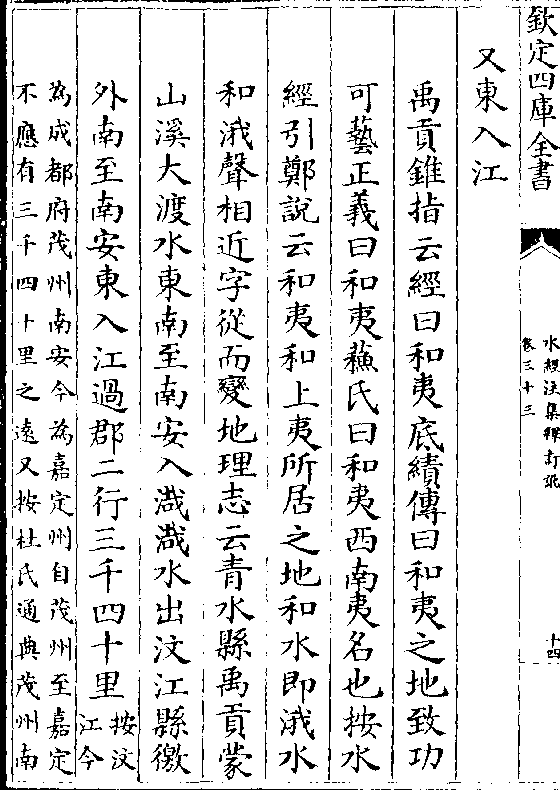 欽定四庫全書
水經注集釋訂訛
卷三十三
十四
又東入江
禹貢錐指云經曰和夷底績傳曰和夷之地致功
可藝正義曰和夷蘓氏曰和夷西南夷名也按水
經引鄭說云和夷和上夷所居之地和水即涐水
和涐聲相近字從而變地理志云青水縣禹貢蒙
山溪大渡水東南至南安入渽渽水出汶江縣徼
外南至南安東入江過郡二行三千四十里按汶
江今
為成都府茂州南安今為嘉定州自茂州至嘉定
不應有三千四十里之遠又按杜氏通典茂州南